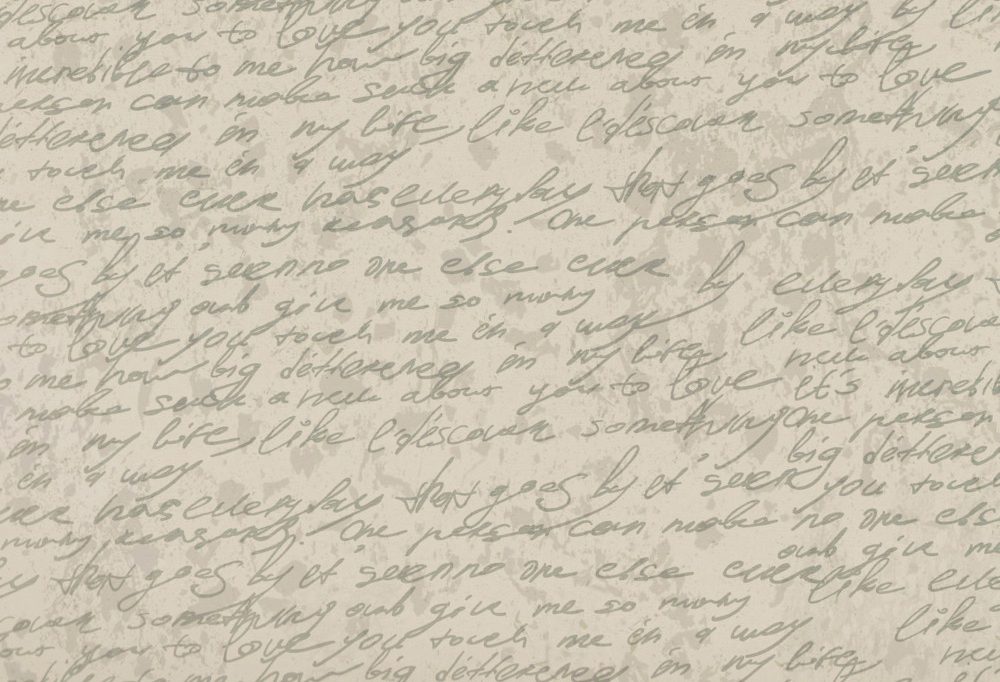 discover something you touch me in a way by li
about you to love
incredible to me how big difference in my life
person can make such a new about you to love
difference in my life, like I discover something
touch me in a way
one else ever has every day that goes by it seem
give me so many reasons. One person can make
goes by it seem no one else ever by every day
something and give me so many
to love you touch me in a way like I discover
me how big difference in my life new about
make such a new about you to love it's incredib
in my life, like I discover something One person
in a way big differen
ever has every day that goes by it seem you touch
many reasons. One person can make no one els
and give me
by that goes by it seem no one else ever like eve
cover something and give me so many like
about you to love you touch me in a way
me how big difference in my life new